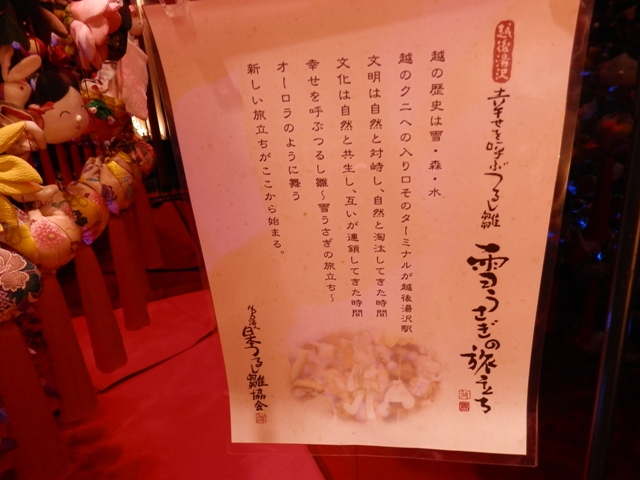 越後湯沢
幸せを呼ぶつるし雛
雪うさぎの旅立ち
越の歴史は雪・森・水
越のクニへの入り口そのターミナルが越後湯沢駅
文明は自然と対峙し、自然と淘汰してきた時間
文化は自然と共生し、互いが連鎖してきた時間
幸せを呼ぶつるし雛～雪うさぎの旅立ち～
オーロラのように舞う
新しい旅立ちがここから始まる。
日本つるし雛協会